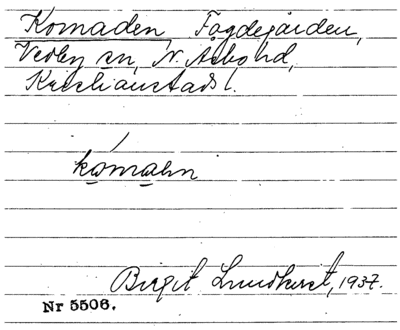 Komaden, Fogdegården,
Vedby sn, N. Åsbo hd,
Kristianstads l.
komahn
Birgit Lundkvist, 1937.
Nr 5506.